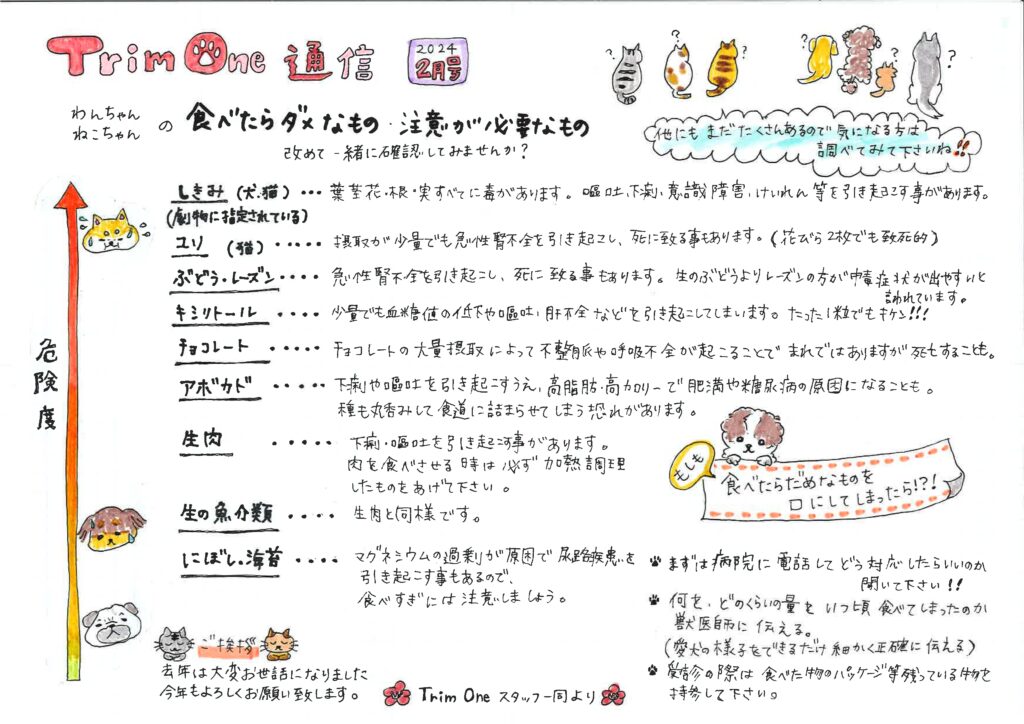 Trim One 通信
2024
2月号
? ? ? ? ? ?
わんちゃん
ねこちゃん
の 食べたらダメなもの・注意が必要なもの
改めて一緒に確認してみませんか？
他にもまだたくさんあるので気になる方は
調べてみて下さいね!!
危険度
しきみ (犬・猫) ・・・ 葉茎花・根・実すべてに毒があります。嘔吐、下痢、意識障害、けいれん等を引き起こす事があります。
(劇物に指定されている)
ユリ (猫) ・・・・・ 摂取が少量でも急性腎不全を引き起こし、死に致る事もあります。(花びら2枚でも致死的)
ぶどう・レーズン ・・・・ 急性腎不全を引き起こし、死に致る事もあります。生のぶどうよりレーズンの方が中毒症状が出やすいと
言われています。
キシリトール ・・・・・ 少量でも血糖値の低下や嘔吐、肝不全などを引き起こしてしまいます。たった1粒でもキケン!!!
チョコレート ・・・・・ チョコレートの大量摂取によって不整脈や呼吸不全が起こることでまれではありますが死亡することも。
アボカド ・・・・・ 下痢や嘔吐を引き起こすうえ、高脂肪・高カロリーで肥満や糖尿病の原因になることも。
種も丸呑みして食道に詰まらせてしまう恐れがあります。
生肉 ・・・・・ 下痢・嘔吐を引き起こす事があります。
肉を食べさせる時は必ず加熱調理
したものをあげて下さい。
生の魚介類 ・・・・ 生肉と同様です。
にぼし・海苔 ・・・・ マグネシウムの過剰が原因で尿路疾患を
引き起こす事もあるので、
食べすぎには注意しましょう。
もしも
食べたらだめなものを
口にしてしまったら!?!
まずは病院に電話してどう対応したらいいのか
聞いて下さい!!
何を、どのくらいの量をいつ頃食べてしまったのか
獣医師に伝える。
(愛犬の様子をできるだけ細かく正確に伝える)
受診の際は食べた物のパッケージ等残っている物を
持参して下さい。
ご挨拶
去年は大変お世話になりました
今年もよろしくお願い致します。
Trim One スタッフ一同より